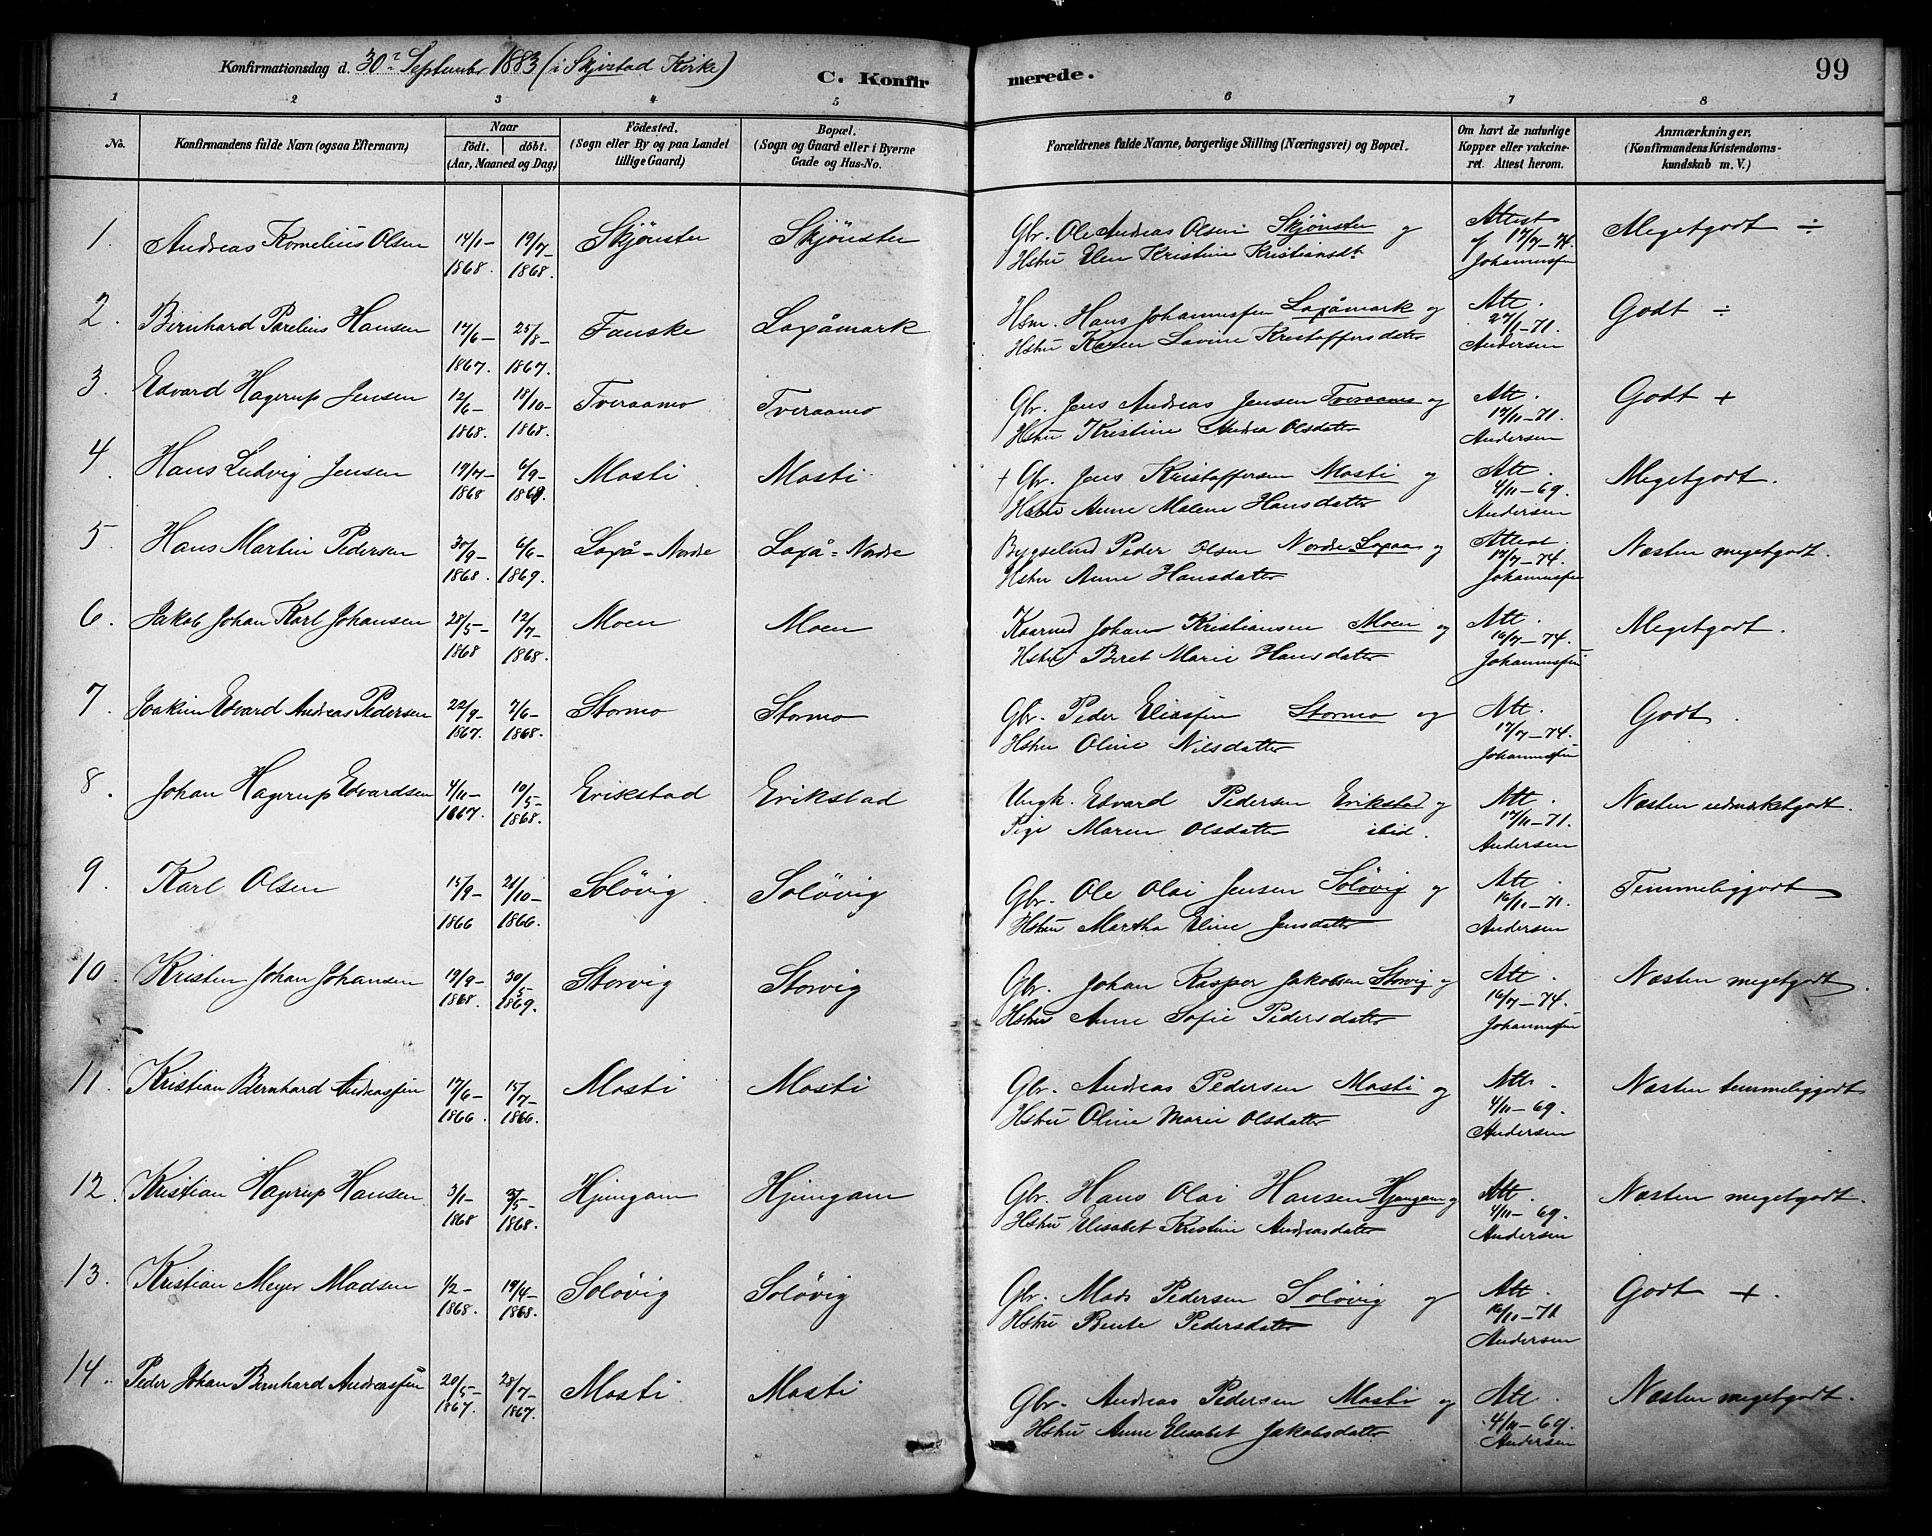 Konfirmationsdag d. 30te September 1883 (i Skjerstad Kirke) C. Konfirmerede. 99
1 2 3 4 5 6 7 8
No. Konfirmandens fulde Navn (ogsaa Efternavn) Naar födt. döbt. (Aar, Maaned og Dag) Födested. (Sogn eller By og paa Landet tillige Gaard) Bopæl. (Sogn og Gaard eller i Byerne Gade og Hus-No. Forældrenes fulde Navne, borgerlige Stilling (Næringsvei) og Bopæl. Om havt de naturlige Kopper eller vakcineret. Attest herom. Anmærkninger. (Konfirmandens Kristendomskundskab m. V.)
1. Andreas Kornelius Olsen 14/1-1868. 19/7-1868. Skjönster Skjönster Gbr. Ole Andreas Olsen Skjönster og Attest af 17/7-74. Megetgodt ÷
Hstru Elen Kristine Kristiansdt Johannesen
2. Bernhard Parelius Hansen 17/6-1867. 25/8-1867. Fauske Laxåmark Hsm. Hans Johannesen Laxåmark og Att. 27/1-71. Godt ÷
Hstru Karen Lovine Kristoffersdatter Andersen
3. Edvard Hagerup Jensen 12/6-1868. 18/10-1868. Tveraamo Tveraamo Gbr. Jens Andreas Jensen Tveraamo og Att. 17/11-71. Godt +
Hstru Kristine Andrea Olsdatter Andersen
4. Hans Ludvig Jensen 17/7 1868 6/9-1868. Mosti Mosti + Gbr. Jens Kristoffersen Mosti og Att. 4/11-69. Megetgodt.
Hstru Anne Malene Hansdatter Andersen
5. Hans Martin Pedersen 30/9-1868. 6/6-1869. Laxå-Nordre Laxå-Nordre Bygselmd Peder Olsen Nordre Laxaa og Attest 17/7-74. Næsten megetgodt.
Hstru Anne Hansdatter Johannesen
6. Jakob Johan Karl Johansen 28/5-1868 12/7-1868. Moen Moen Kaarmd Johan Kristiansen Moen og Att. 16/7-74. Megetgodt.
Hstru Beret Marie Hansdatter Johannesen
7. Joakim Edvard Andreas Pedersen 22/9-1867. 7/6-1868. Stormo Stormo Gbr. Peder Eliassen Stormo og Att. 17/7-74. Godt.
Hstru Oline Nilsdatter Johannesen
8. Johan Hagerup Edvardsen 4/11-1867. 10/5-1868. Erikstad Erikstad Ungk. Edvard Pedersen Erikstad og Att. 17/11-71. Næsten udmrketgodt.
Pige Maren Olsdatter ibid. Andersen
9. Karl Olsen 15/9-1866 28/10-1866. Solövig Solövig Gbr. Ole Olai Jensen Solövig og Att. 16/11-71. Temmeliggodt
Hstru Martha Eline Jensdatter Andersen
10. Kristen Johan Johansen 19/9-1868. 30/5-1869. Storvig Storvig Gbr. Johan Kaspar Jakobsen Storvig og Att. 16/7-74. Næsten megetgodt.
Hstru Anne Sofie Pedersdatter Johannesen
11. Kristian Bernhard Andreassen 17/6-1866 15/7-1866. Mosti Mosti Gbr. Andreas Pedersen Mosti og Att. 4/11-69. Næsten temmeliggodt
Hstru Oline Marie Olsdatter Andersen
12. Kristian Hagerup Hansen 3/1-1868 3/5-1868. Hjemgam Hjemgam Gbr. Hans Olai Hansen Hjemgam og Att. 4/11-69. Næsten megetgodt.
Hstru Elisabet Kristine Andreasdatter Andersen
13. Kristian Meyer Madsen 1/2-1868. 19/4-1868. Solövig Solövig Gbr. Mads Pedersen Solövig og Att. 16/11-71 Godt +.
Hstru Bente Pedersdatter Andersen
14. Peder Johan Bernhard Andreassen 20/5-1867. 28/7-1867. Mosti Mosti Gbr. Andreas Pedersen Mosti og Att. 4/11-69. Næsten megetgodt.
Hstru Anne Elisabet Jakobsdatter Andersen